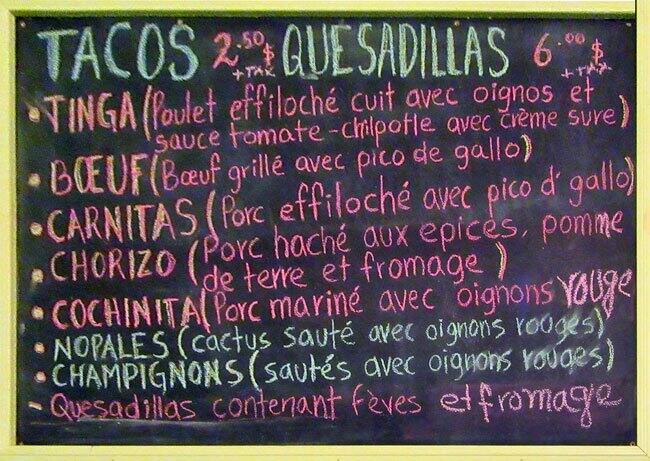 TACOS 2.50$ +TAX QUESADILLAS 6.00$ +TAX
• TINGA (Poulet effiloché cuit avec oignos et
sauce tomate-chilpotle avec crème sure)
• BŒUF (Bœuf grillé avec pico de gallo)
• CARNITAS (Porc effiloché avec pico d' gallo)
• CHORIZO (Porc haché aux epices, pomme
de terre et fromage)
• COCHINITA (Porc mariné avec oignons rouge
• NOPALES (cactus sauté avec oignons rouges)
• CHAMPIGNONS (sautés avec oignons rouges)
- Quesadillas contenant fèves et fromage